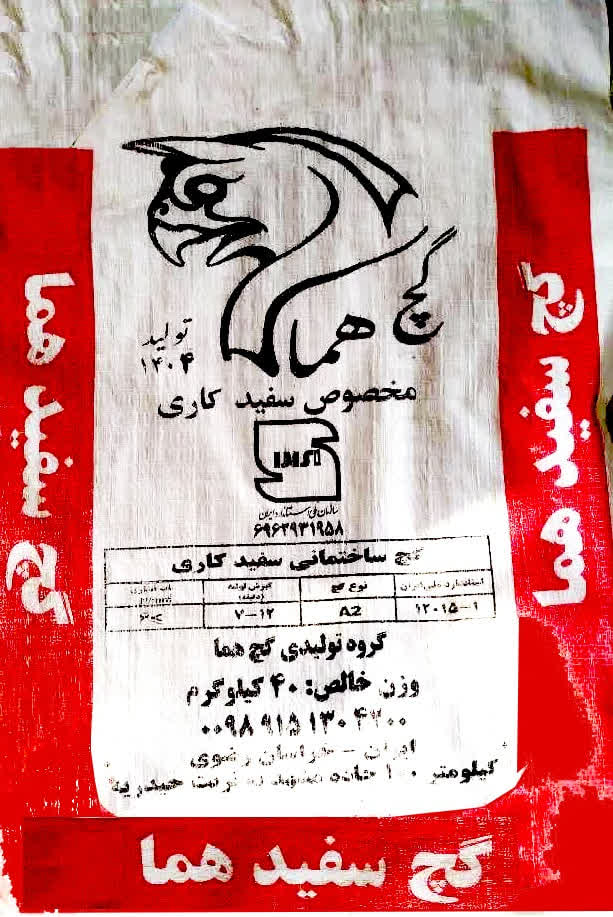 گچ هما
تولید
۱۴۰۴
مخصوص سفید کاری
ISIRI
سازمان ملی استاندارد ایران
۶۹۶۲۹۳۱۹۵۸
گچ ساختمانی سفید کاری
استاندارد ملی ایران نوع گچ گیرش اولیه
(دقیقه)
۱۲۰۱۵-۱ A2 ۷-۱۲
گروه تولیدی گچ هما
وزن خالص: ۴۰ کیلوگرم
۰۰۹۸ ۹۱۵ ۱۳۰ ۴۲۰۰
ایران - خراسان رضوی
کیلومتر جاده مشهد به تربت حیدریه
گچ سفید هما
گچ سفید هما
گچ سفید هما